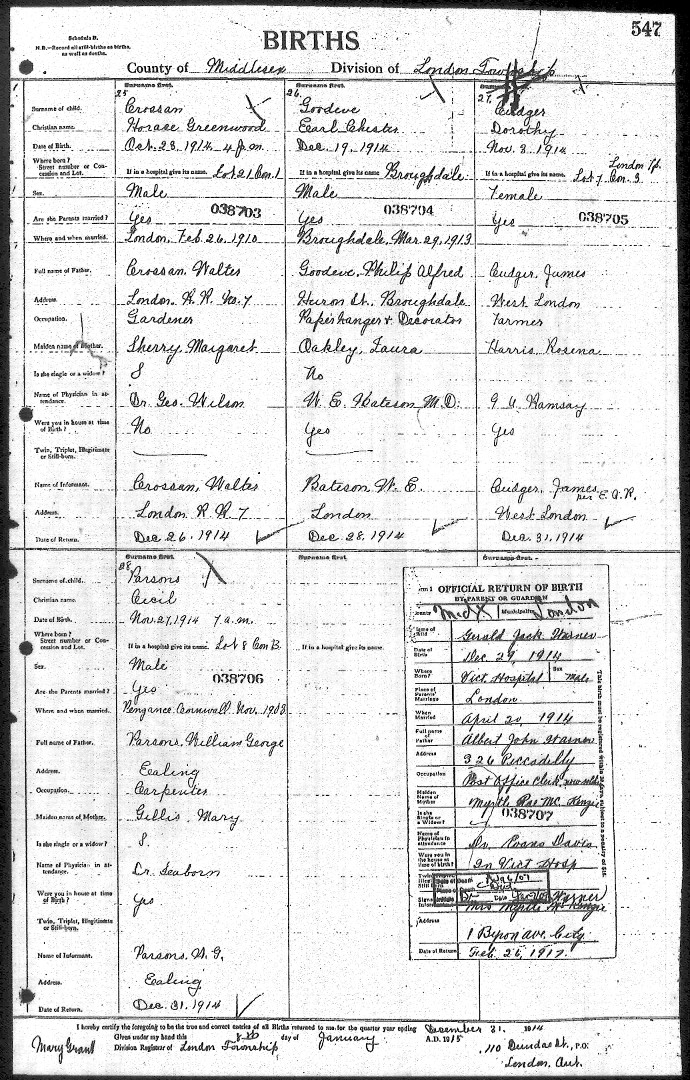 547
Schedule B.
N.B.—Record all still-births as births, as well as deaths.
BIRTHS
County of Middlesex Division of London Township
Surname first. Surname first. Surname first.
25 26 27
Surname of child. Crossan Goodeve Cudger
Christian name. Horace Greenwood Earl Chester Dorothy
Date of Birth. Oct. 23, 1914 4 p.m. Dec. 19, 1914 Nov. 3, 1914
Where born? Street number or Concession and Lot. If in a hospital give its name. Lot 21 Con. 1 If in a hospital give its name. Broughdale If in a hospital give its name. London Tp. Lot 7 Con. 3
Sex. Male Male Female
038703 038704 038705
Are the Parents married? Yes Yes Yes
Where and when married. London, Feb. 26, 1910 Broughdale, Mar. 29, 1913
Full name of Father. Crossan, Walter Goodeve, Philip Alfred Cudger, James
Address. London R. R. No. 7 Huron St. Broughdale West London
Occupation. Gardener Paperhanger & Decorator Farmer
Maiden name of Mother. Sherry Margaret Oakley, Laura Harris, Rosena
Is she single or a widow? S No
Name of Physician in attendance. Dr. Geo. Wilson W. E. Bateson M.D. Ramsay
Were you in house at time of Birth? No Yes Yes
Twin, Triplet, Illegitimate or Still-born.
Name of Informant. Crossan, Walter Bateson W. E. Cudger, James per E. A. R.
Address. London R R 7 London West London
Date of Return. Dec. 26, 1914 Dec. 28, 1914 Dec. 31, 1914
Surname first. Surname first. Surname first.
28
Surname of child. Parsons
Christian name. Cecil
Date of Birth. Nov. 27, 1914 7 a.m.
Where born? Street number or Concession and Lot. If in a hospital give its name. Lot 8 Con B. If in a hospital give its name.
Sex. Male
038706
Are the Parents married? Yes
Where and when married. Penzance Cornwall Nov. 1903
Full name of Father. Parsons, William George
Address. Ealing
Occupation. Carpenter
Maiden name of Mother. Gillis, Mary
Is she single or a widow? S.
Name of Physician in attendance. Dr. Seaborn
Were you in house at time of Birth? Yes
Twin, Triplet, Illegitimate or Still-born.
Name of Informant. Parsons, W. G.
Address. Ealing
Date of Return. Dec. 31, 1914
OFFICIAL RETURN OF BIRTH
BY PARENT OR GUARDIAN
Midx Municipality London
Name of Child Gerald Jack Warner
Date of Birth Dec 29, 1914
Where Born? Vict. Hospital Sex Male
Place of Parents' Marriage London
When Married April 20, 1914
Full name of Father Albert John Warner
Address 326 Piccadilly
Occupation Post Office Clerk, now soldier
Maiden Name of Mother Myrtle Rae Mc Kenzie
Is she Single or a Widow? 038707
Name of Physician in attendance Dr. Evans Davis
Were you in the house at time of birth? In Vict Hosp
Mrs Myrtle Mc Kenzie Warner
Address 1 Byron Ave. City
Date of Return Feb. 26, 1917.
I hereby certify the foregoing to be the true and correct entries of all Births returned to me for the quarter year ending December 31, 1914
Given under my hand this 8th day of January A.D. 1915
Mary Grant Division Registrar of London Township 110 Dundas St., P.O.
London, Ont.